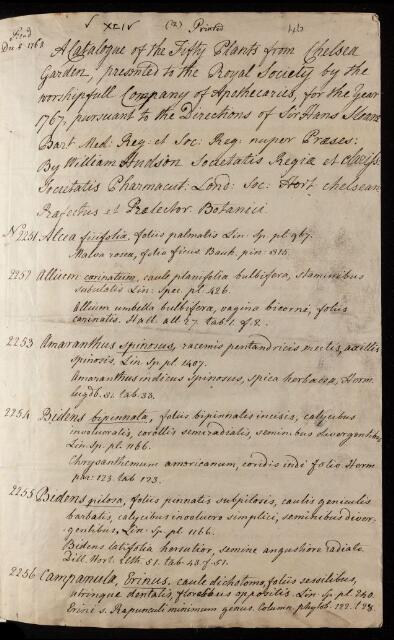 Read
Dec 8 1768
√ XLIV (12) Printed
A Catalogue of the Fifty Plants from Chelsea
Garden, presented to the Royal Society by the
worshipfull Company of Apothecaries, for the Year
1767, pursuant to the Directions of Sir Hans Sloane
Bart Med: Reg: et Soc: Reg: nuper Præses:
By William Hudson Societatis Regiæ et
Societatis Pharmaceut: Lond: Soc: Hort chelsean
Præfectus et Prælector Botanic:
No 2251 Alcea ficifolia, foliis palmatis Lin: Sp. pl. 967.
Malva rosea, folio ficus Bauh. pin. 315.
2252 Allium carinatum, caule planifolio bulbifero, staminibus
subulatis Lin: Spec. pl. 426.
Allium umbella bulbifera, vagina bicorni, foliis
carinatis. Hall. all 27. tab 1. f. 2.
2253 Amaranthus spinosus, racemis pentandricis axillis
spinosis. Lin Sp. pl. 1407.
Amaranthus indicus spinosus, spica herbacea, Herm.
lugdb. 31. tab. 33.
2254 Bidens bipinnata, foliis bipinnatis incisis, calycibus
involucratis, corollis semiradiatis, seminibus divergentibus
Lin: Sp. pl: 1166.
Chrysanthemum americanum, folio Herm
par: 123. tab 123.
2255 Bidens pilosa, foliis pinnatis subpilosis, caulis geniculis
barbatis, calycibus involucro simplici, seminibus diver-
gentibus, Lin: Sp. pl: 1166.
Bidens latifolia hirsutior, semine angustiore radiato
Dill. Hort. Elth. 51. tab. 43. f. 51.
2256 Campanula, Erinus, caule dichotomo, foliis sessilibus,
utrinque dentatis, floralibus oppositis Lin: Sp pl: 240.
Erini s. Rapunculi minimum genus. Column. phytob. 122. t 28.